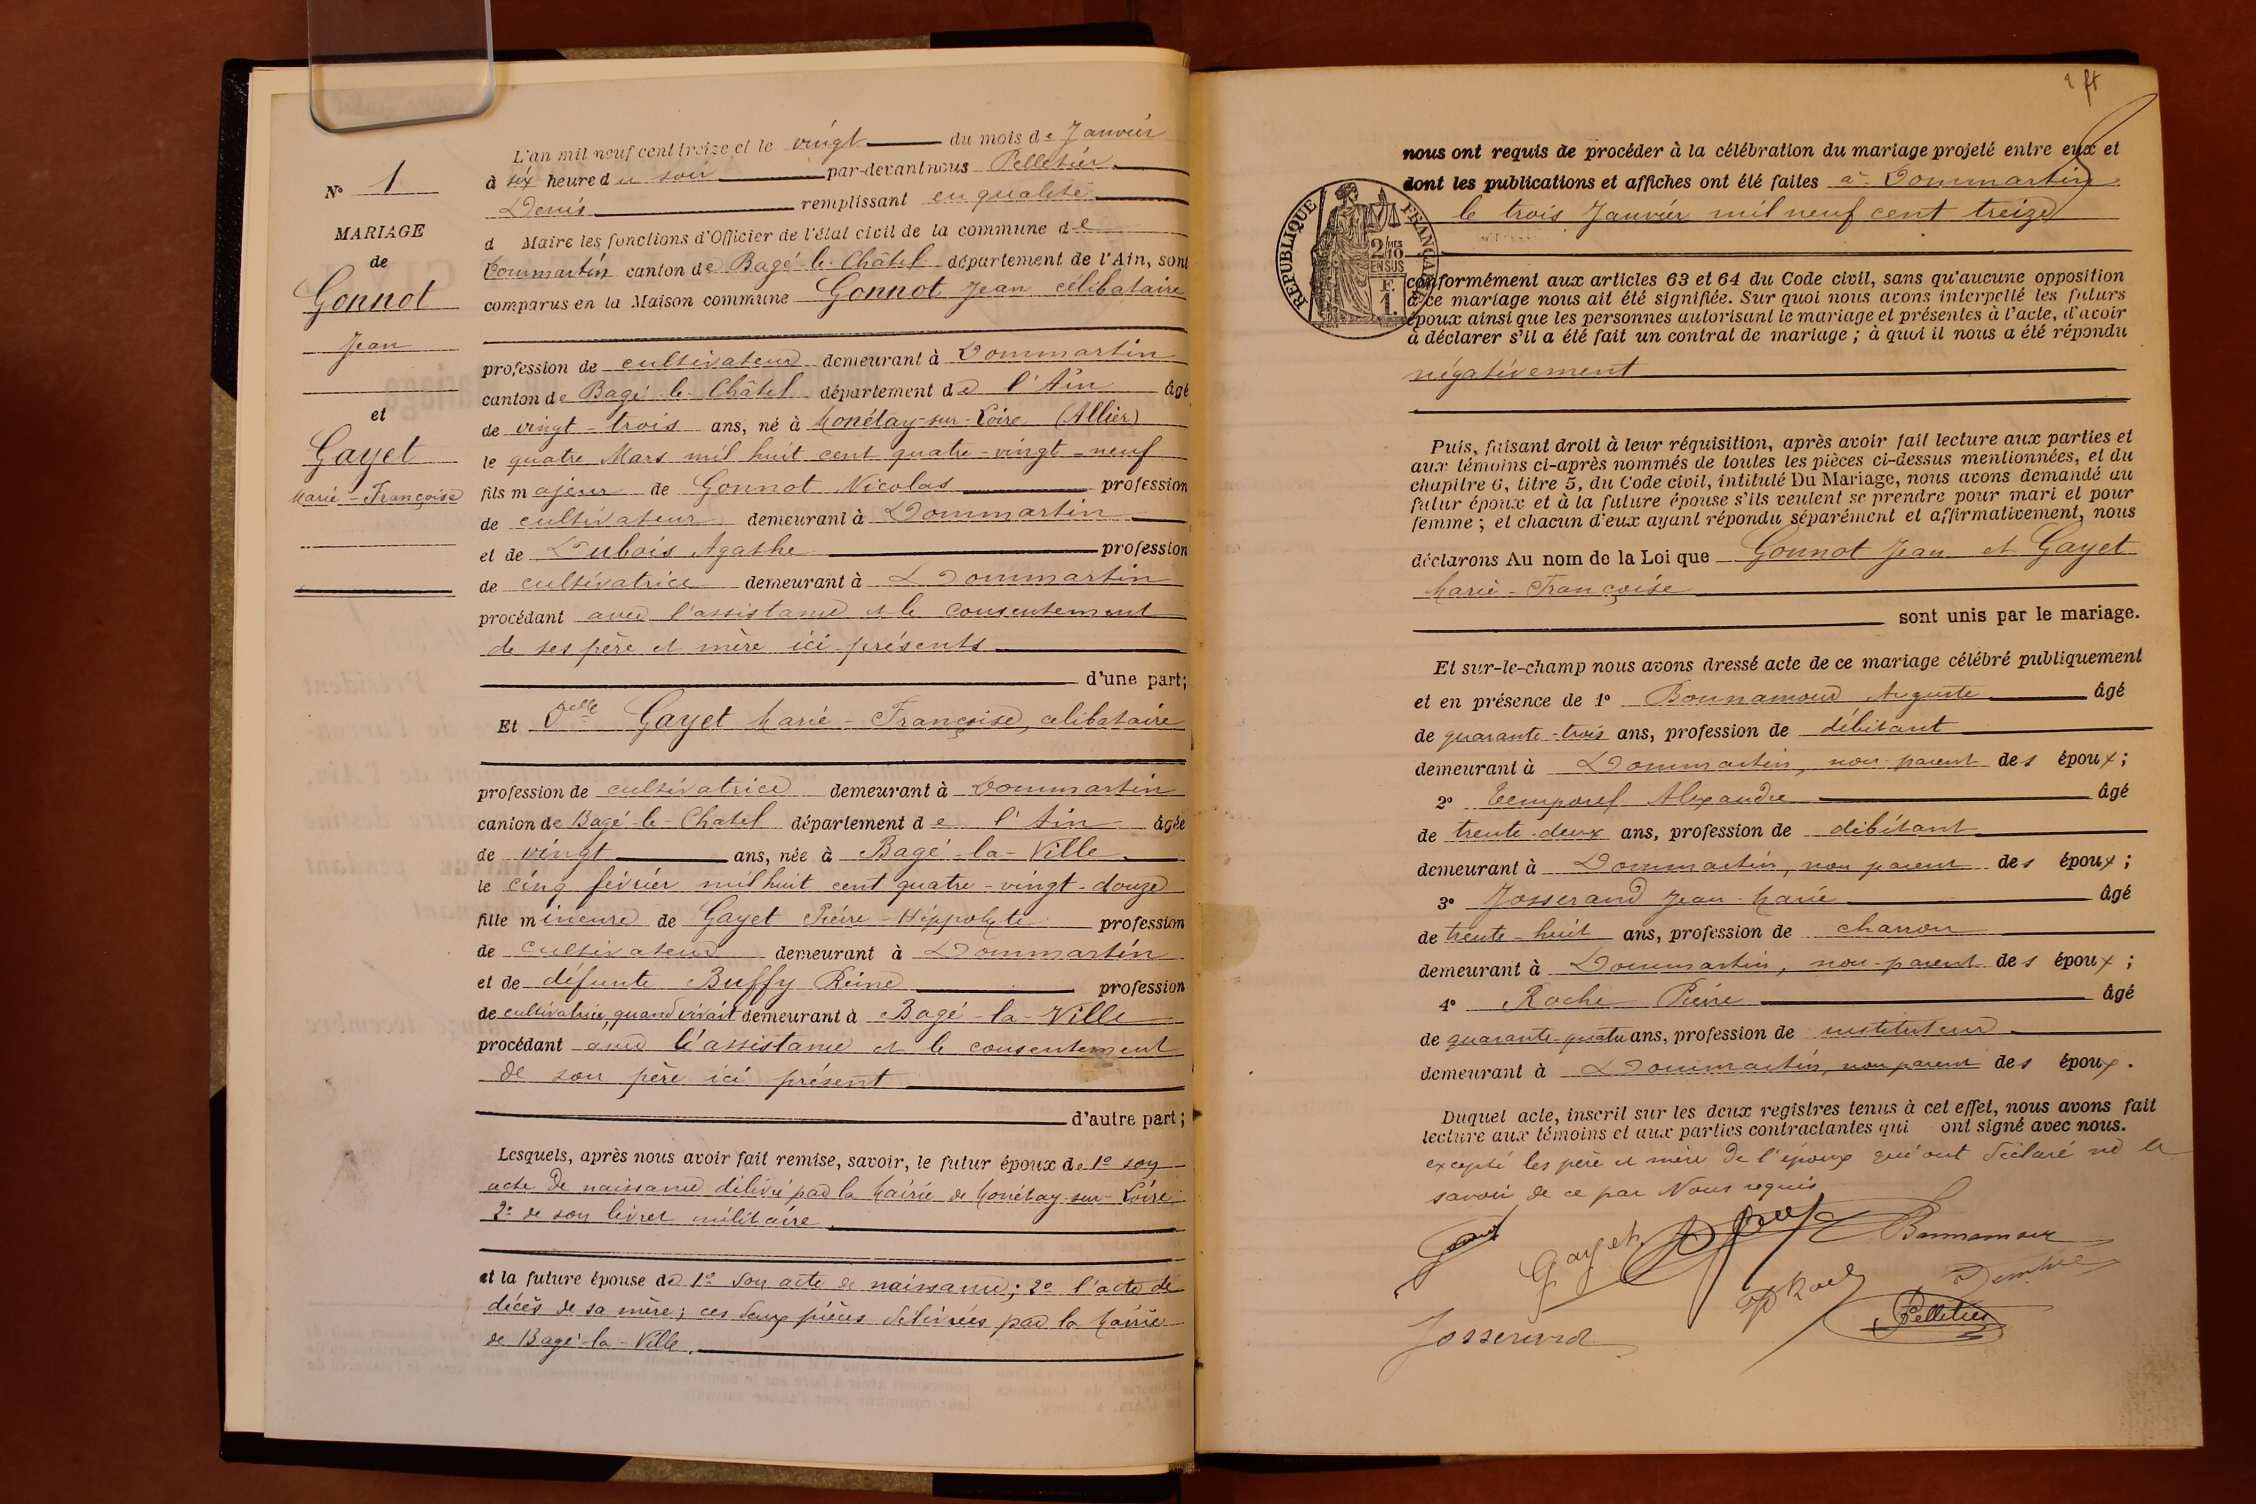 L'an mil neuf cent treize et le vingt du mois de Janvier
à six heure du soir par-devant nous Pelletier
Denis remplissant en qualité
d Maire les fonctions d'Officier de l'état civil de la commune de
Dommartin canton de Bagé-le-Châtel département de l'Ain, sont
comparus en la Maison commune Gonnot Jean célibataire
profession de cultivateur demeurant à Dommartin
canton de Bagé-le-Châtel département de l'Ain âgé
de vingt-trois ans, né à Monétay-sur-Loire (Allier)
le quatre Mars mil huit cent quatre-vingt-neuf
fils majeur de Gonnot Nicolas profession
de cultivateur demeurant à Dommartin
et de Dubois Agathe profession
de cultivatrice demeurant à Dommartin
procédant avec l'assistance et le consentement
de ses père et mère ici présents
d'une part;
Et Delle Gayet Marie-Françoise, célibataire
profession de cultivatrice demeurant à Dommartin
canton de Bagé-le-Chatel département de l'Ain âgée
de vingt ans, née à Bagé-la-Ville
le cinq février mil huit cent quatre-vingt-douze
fille mineure de Gayet Pierre-Hippolyte profession
de cultivateur demeurant à Dommartin
et de défunte Buffy Reine profession
de cultivatrice, quand vivait demeurant à Bagé-la-Ville
procédant avec l'assistance et le consentement
de son père ici présent
d'autre part;
Lesquels, après nous avoir fait remise, savoir, le futur époux de 1o son
acte de naissance délivré par la Mairie de Monétay-sur-Loire;
2o de son livret militaire
et la future épouse de 1o son acte de naissance; 2o l'acte de
décès de sa mère; ces deux pièces délivrées par la Mairie
de Bagé-la-Ville.
No 1
MARIAGE
de
Gonnot
Jean
et
Gayet
Marie-Françoise
2 ft
nous ont requis de procéder à la célébration du mariage projeté entre eux et
dont les publications et affiches ont été faites à Dommartin
le trois Janvier mil neuf cent treize
RÉPUBLIQUE FRANÇAISE
2/10 EN SUS
F. 1.
conformément aux articles 63 et 64 du Code civil, sans qu'aucune opposition
à ce mariage nous ait été signifiée. Sur quoi nous avons interpellé les futurs
époux ainsi que les personnes autorisant le mariage et présentes à l'acte, d'avoir
à déclarer s'il a été fait un contrat de mariage; à quoi il nous a été répondu
négativement
Puis, faisant droit à leur réquisition, après avoir fait lecture aux parties et
aux témoins ci-après nommés de toutes les pièces ci-dessus mentionnées, et du
chapitre 6, titre 5, du Code civil, intitulé Du Mariage, nous avons demandé au
futur époux et à la future épouse s'ils veulent se prendre pour mari et pour
femme; et chacun d'eux ayant répondu séparément et affirmativement, nous
déclarons Au nom de la Loi que Gonnot Jean et Gayet
Marie-Françoise
sont unis par le mariage.
Et sur-le-champ nous avons dressé acte de ce mariage célébré publiquement
et en présence de 1o Bonnamour Auguste âgé
de quarante-trois ans, profession de débitant
demeurant à Dommartin, non parent des époux;
2o Temporel Alexandre âgé
de trente-deux ans, profession de débitant
demeurant à Dommartin, non parent des époux;
3o Josserand Jean-Marie âgé
de trente-huit ans, profession de charron
demeurant à Dommartin, non-parent des époux;
4o Roche Pierre âgé
de quarante-quatre ans, profession de instituteur
demeurant à Dommartin, non parent des époux.
Duquel acte, inscrit sur les deux registres tenus à cet effet, nous avons fait
lecture aux témoins et aux parties contractantes qui ont signé avec nous.
excepté les père et mère de l'époux qui ont déclaré ne le
savoir de ce par Nous requis
Gonnot Gayet Bonnamour
Josserand Pelletier